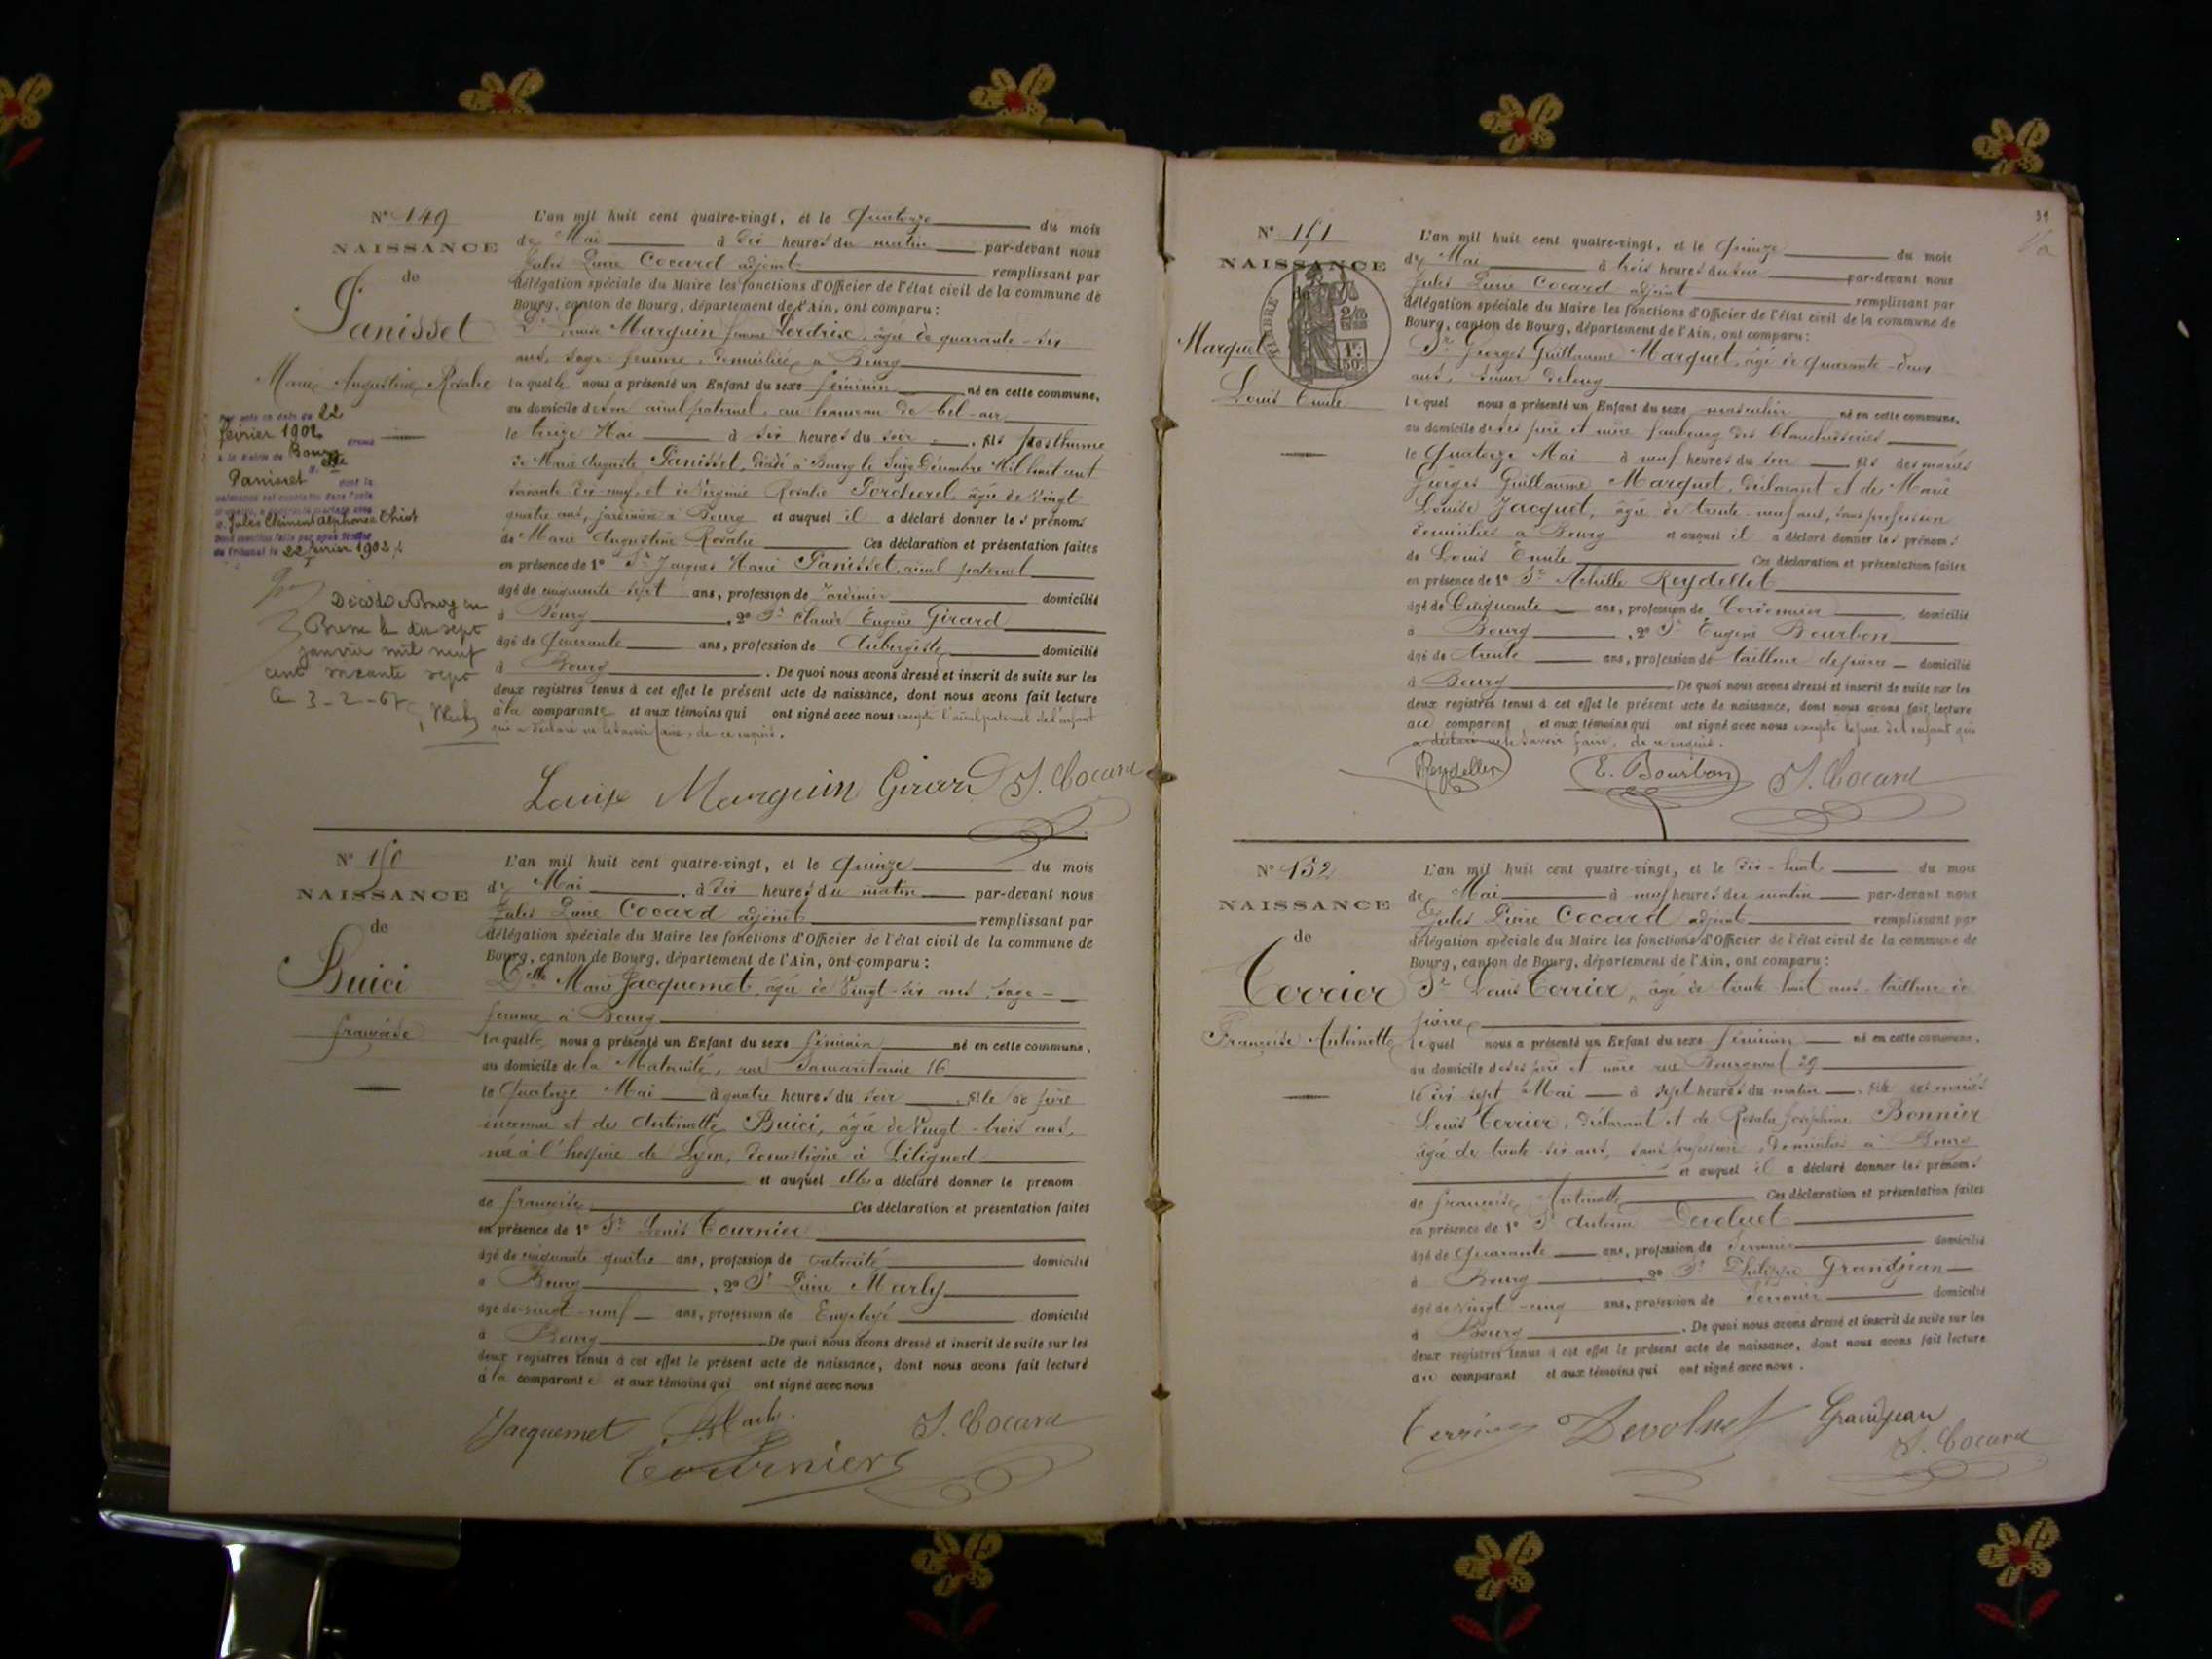 N° 149
NAISSANCE
de
Panisset
Marie Augustine Rosalie
Par acte en date du 22
février 1902
à la Mairie de Bourg
Panisset dont la
naissance est constatée dans l'acte
Jules Clément Alphonse
22 février 1902
Décédée à Bourg en
Bresse le dix sept
janvier mil neuf
cent soixante sept
le 3-2-67
L'an mil huit cent quatre-vingt, et le Quatorze du mois
de Mai à dix heures du matin par-devant nous
Jules Pierre Cocard adjoint remplissant par
délégation spéciale du Maire les fonctions d'Officier de l'état civil de la commune de
Bourg, canton de Bourg, département de l'Ain, ont comparu :
Louise Marguin femme Perdrix, âgée de quarante-six
ans, sage-femme, domiciliée à Bourg
laquelle nous a présenté un Enfant du sexe féminin né en cette commune,
au domicile de son aïeul paternel, au hameau de bel-air
le treize Mai à six heures du soir, fils posthume
de Marie Auguste Panisset, décédé à Bourg le Seize Décembre Mil huit cent
soixante dix-neuf, et de Virginie Rosalie Porcherel, âgée de vingt
quatre ans, jardinière à Bourg et auquel il a déclaré donner les prénoms
de Marie Augustine Rosalie Ces déclaration et présentation faites
en présence de 1° Sr Jacques Marie Panisset, aïeul paternel
âgé de cinquante-sept ans, profession de domicilié
à Bourg, 2° Sr Claude Eugène Girard
âgé de Quarante ans, profession de Aubergiste domicilié
à Bourg. De quoi nous avons dressé et inscrit de suite sur les
deux registres tenus à cet effet le présent acte de naissance, dont nous avons fait lecture
à la comparante et aux témoins qui ont signé avec nous excepté l'aïeul paternel de l'enfant
qui a déclaré ne le savoir faire, de ce requis.
Louise Marguin Girard J. Cocard
N° 150
NAISSANCE
de
Buici
françoise
L'an mil huit cent quatre-vingt, et le Quinze du mois
de Mai, à dix heures du matin par-devant nous
Jules Pierre Cocard adjoint remplissant par
délégation spéciale du Maire les fonctions d'Officier de l'état civil de la commune de
Bourg, canton de Bourg, département de l'Ain, ont comparu :
Delle Marie Jacquemet, âgée de Vingt-six ans, sage-
femme à Bourg
laquelle nous a présenté un Enfant du sexe féminin né en cette commune,
au domicile de la Maternité, rue Samaritaine 16
le Quatorze Mai à quatre heures du soir, fille de père
inconnu et de Antoinette Buici, âgée de Vingt-trois ans,
née à l'hospice de Lyon, domestique à Lilignod
et auquel elle a déclaré donner le prénom
de françoise Ces déclaration et présentation faites
en présence de 1° Sr Louis Tournier
âgé de cinquante quatre ans, profession de retraité domicilié
à Bourg, 2° Sr Pierre Marly
âgé de vingt-neuf ans, profession de Employé domicilié
à Bourg De quoi nous avons dressé et inscrit de suite sur les
deux registres tenus à cet effet le présent acte de naissance, dont nous avons fait lecture
à la comparante et aux témoins qui ont signé avec nous
Jacquemet Marly J. Cocard
Tournier
39
N° 151
NAISSANCE
de
TIMBRE
Marquet
Louis Emile
L'an mil huit cent quatre-vingt, et le Quinze du mois
de Mai à trois heures du soir par-devant nous
Jules Pierre Cocard adjoint remplissant par
délégation spéciale du Maire les fonctions d'Officier de l'état civil de la commune de
Bourg, canton de Bourg, département de l'Ain, ont comparu :
Sr Georges Guillaume Marquet, âgé de quarante-deux
ans, scieur de long
lequel nous a présenté un Enfant du sexe masculin né en cette commune,
au domicile de ses père et mère faubourg des blanchisseries
le Quatorze Mai à neuf heures du soir fils des mariés
Georges Guillaume Marquet, déclarant et de Marie
Louise Jacquet, âgée de trente-neuf ans, sans profession
domiciliés à Bourg et auquel il a déclaré donner les prénoms
de Louis Emile Ces déclaration et présentation faites
en présence de 1° Sr Achille Reydellet
âgé de Cinquante ans, profession de Cordonnier, domicilié
à Bourg, 2° Sr Eugène Bourbon
âgé de trente ans, profession de tailleur de pierre domicilié
à Bourg De quoi nous avons dressé et inscrit de suite sur les
deux registres tenus à cet effet le présent acte de naissance, dont nous avons fait lecture
au comparant et aux témoins qui ont signé avec nous excepté le père de l'enfant qui
a déclaré ne le savoir faire, de ce requis.
Reydellet E. Bourbon J. Cocard
N° 152
NAISSANCE
de
Terrier
Françoise Antoinette
L'an mil huit cent quatre-vingt, et le dix-huit du mois
de Mai à neuf heures du matin par-devant nous
Jules Pierre Cocard adjoint remplissant par
délégation spéciale du Maire les fonctions d'Officier de l'état civil de la commune de
Bourg, canton de Bourg, département de l'Ain, ont comparu :
Sr Louis Terrier, âgé de trente huit ans, tailleur de
pierre
lequel nous a présenté un Enfant du sexe féminin né en cette commune,
au domicile de ses père et mère rue Bourgneuf 29
le dix sept Mai à sept heures du matin, fille des mariés
Louis Terrier, déclarant et de Rosalie Joséphine Bonnier
âgée de trente-six ans, sans profession, domiciliés à Bourg
et auquel il a déclaré donner les prénoms
de françoise Antoinette Ces déclaration et présentation faites
en présence de 1° Sr Antoine Devoluet
âgé de Quarante ans, profession de domicilié
à Bourg 2° Sr Philippe Grandjean
âgé de vingt-cinq ans, profession de domicilié
à Bourg. De quoi nous avons dressé et inscrit de suite sur les
deux registres tenus à cet effet le présent acte de naissance, dont nous avons fait lecture
au comparant et aux témoins qui ont signé avec nous.
Terrier Devoluet Grandjean
J. Cocard